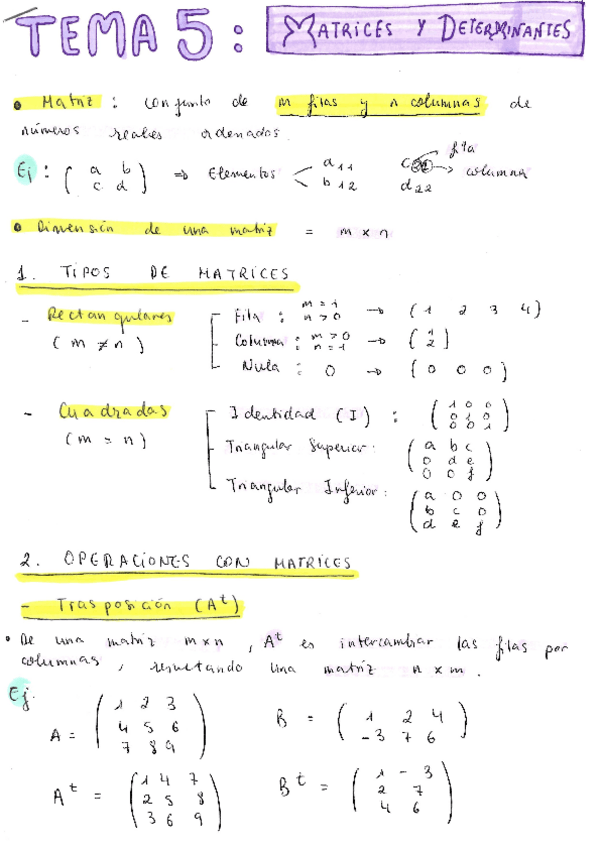 TEMA 5: MATRICES Y DETERMINANTES
• Matriz : conjunto de m filas y n columnas de
números reales ordenados.
Ej : ( a b ⇒ Elementos a11 c21 → fila
c d ) b12 d22 → columna
• Dimensión de una matriz = m x n
1. TIPOS DE MATRICES
- Rectangulares Fila : m = 1 n > 0 → ( 1 2 3 4 )
( m ≠ n ) Columna : m > 0 n = 1 → ( 1 2 )
Nula : 0 → ( 0 0 0 )
- Cuadradas Identidad ( I ) : ( 1 0 0
0 1 0
0 0 1 )
( m = n ) Triangular Superior : ( a b c
0 d e
0 0 f )
Triangular Inferior : ( a 0 0
b c 0
d e f )
2. OPERACIONES CON MATRICES
- Trasposición (A^t)
• De una matriz m x n , A^t es intercambiar las filas por
columnas , resultando una matriz n x m .
Ej.
A = ( 1 2 3
4 5 6
7 8 9 )
B = ( 1 2 4
-3 7 6 )
A^t = ( 1 4 7
2 5 8
3 6 9 )
B^t = ( 1 -3
2 7
4 6 )